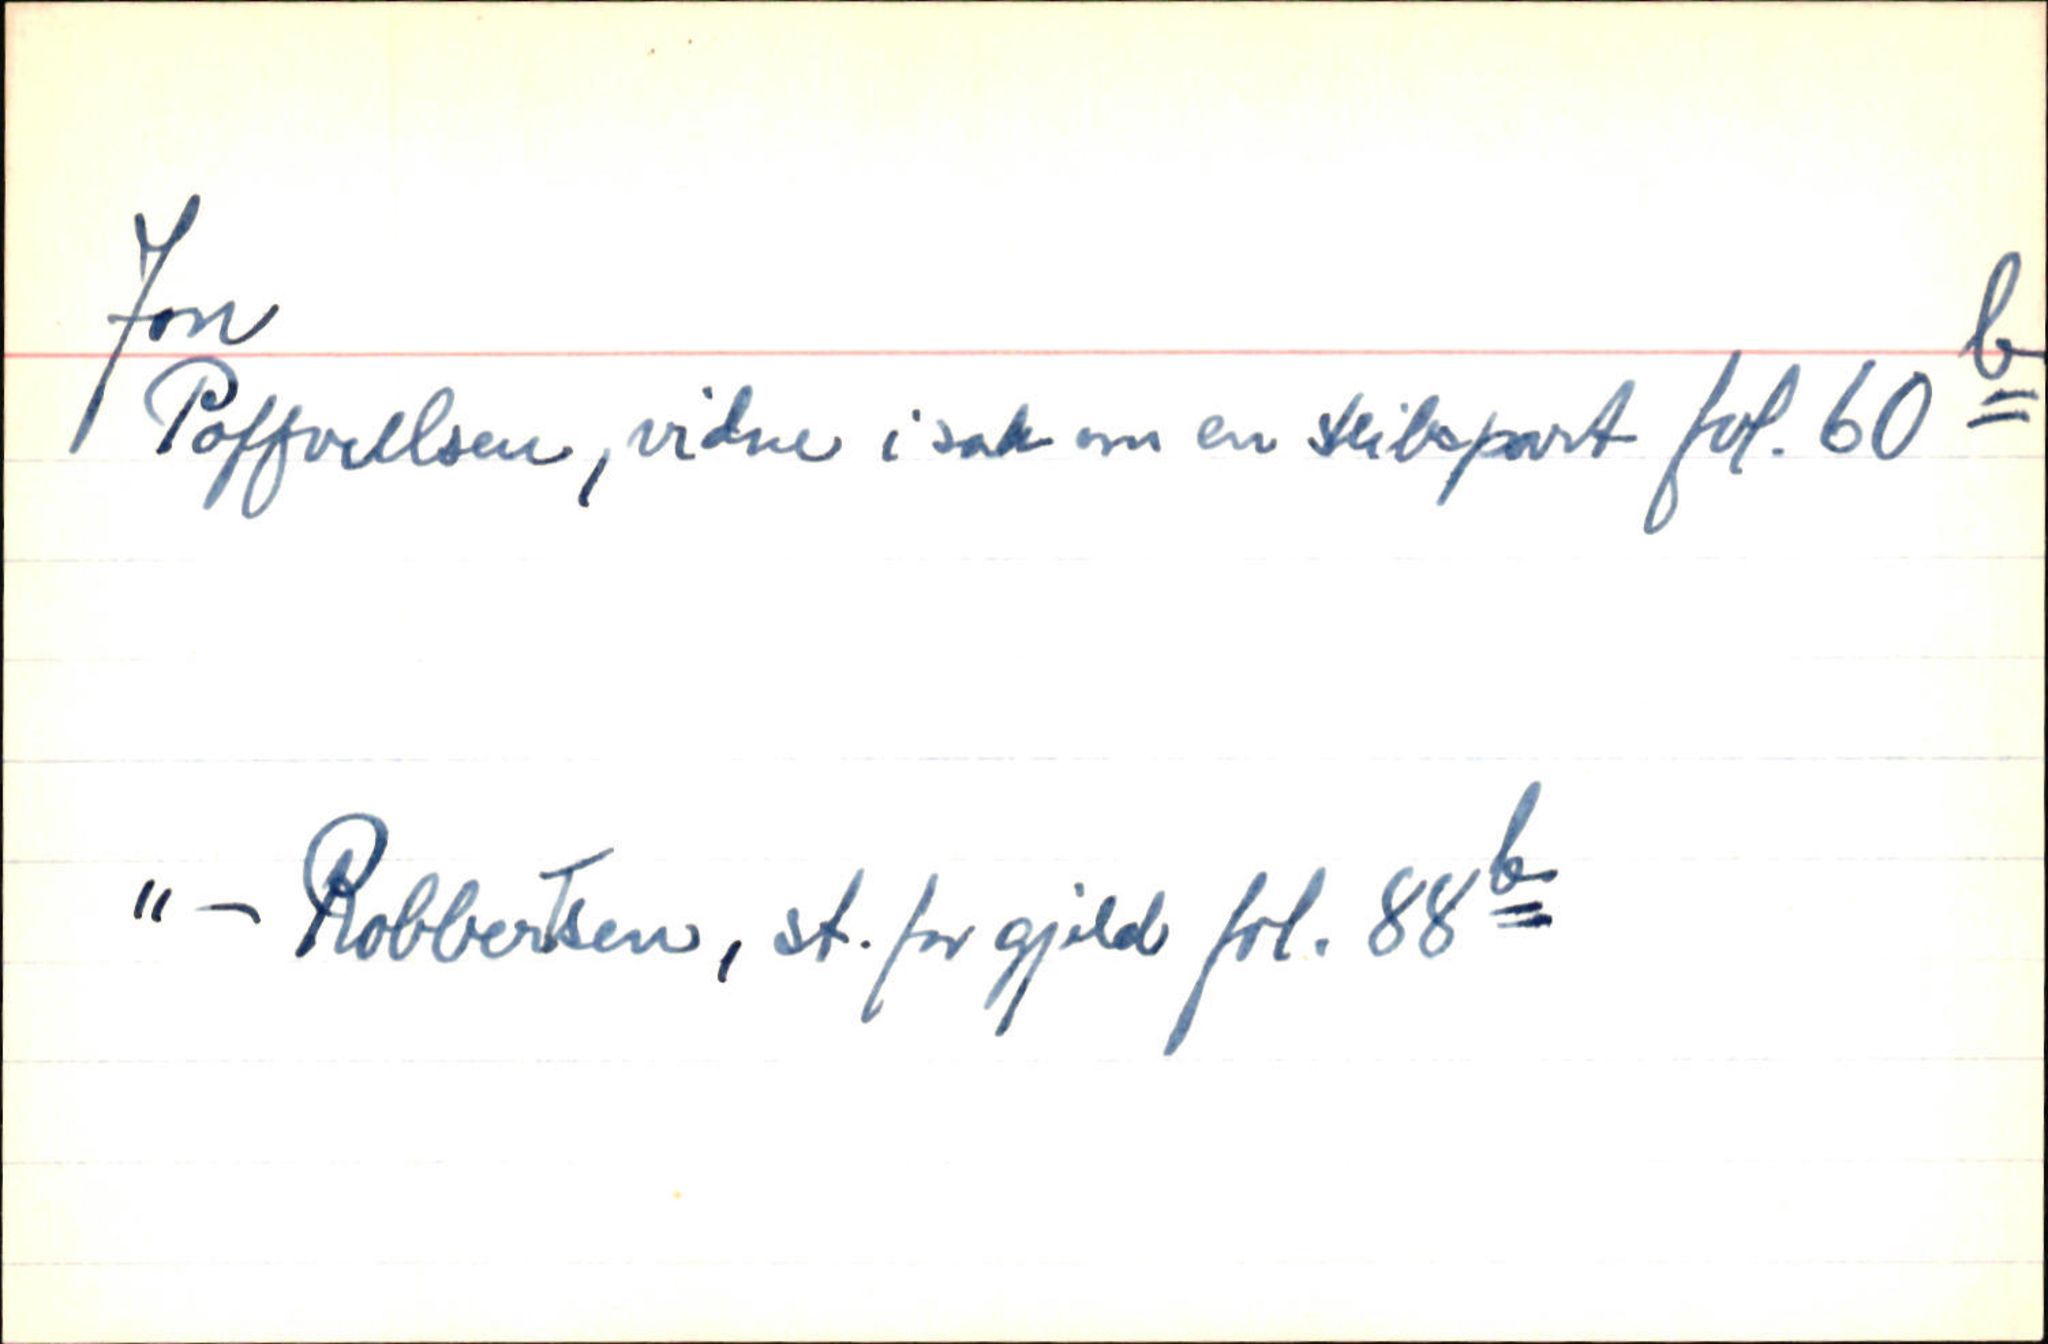 Jon
Poffvellsen, vidne i sak om en skibspart fol. 60 b
"- Robbertsen, st. for gjeld fol. 88 b